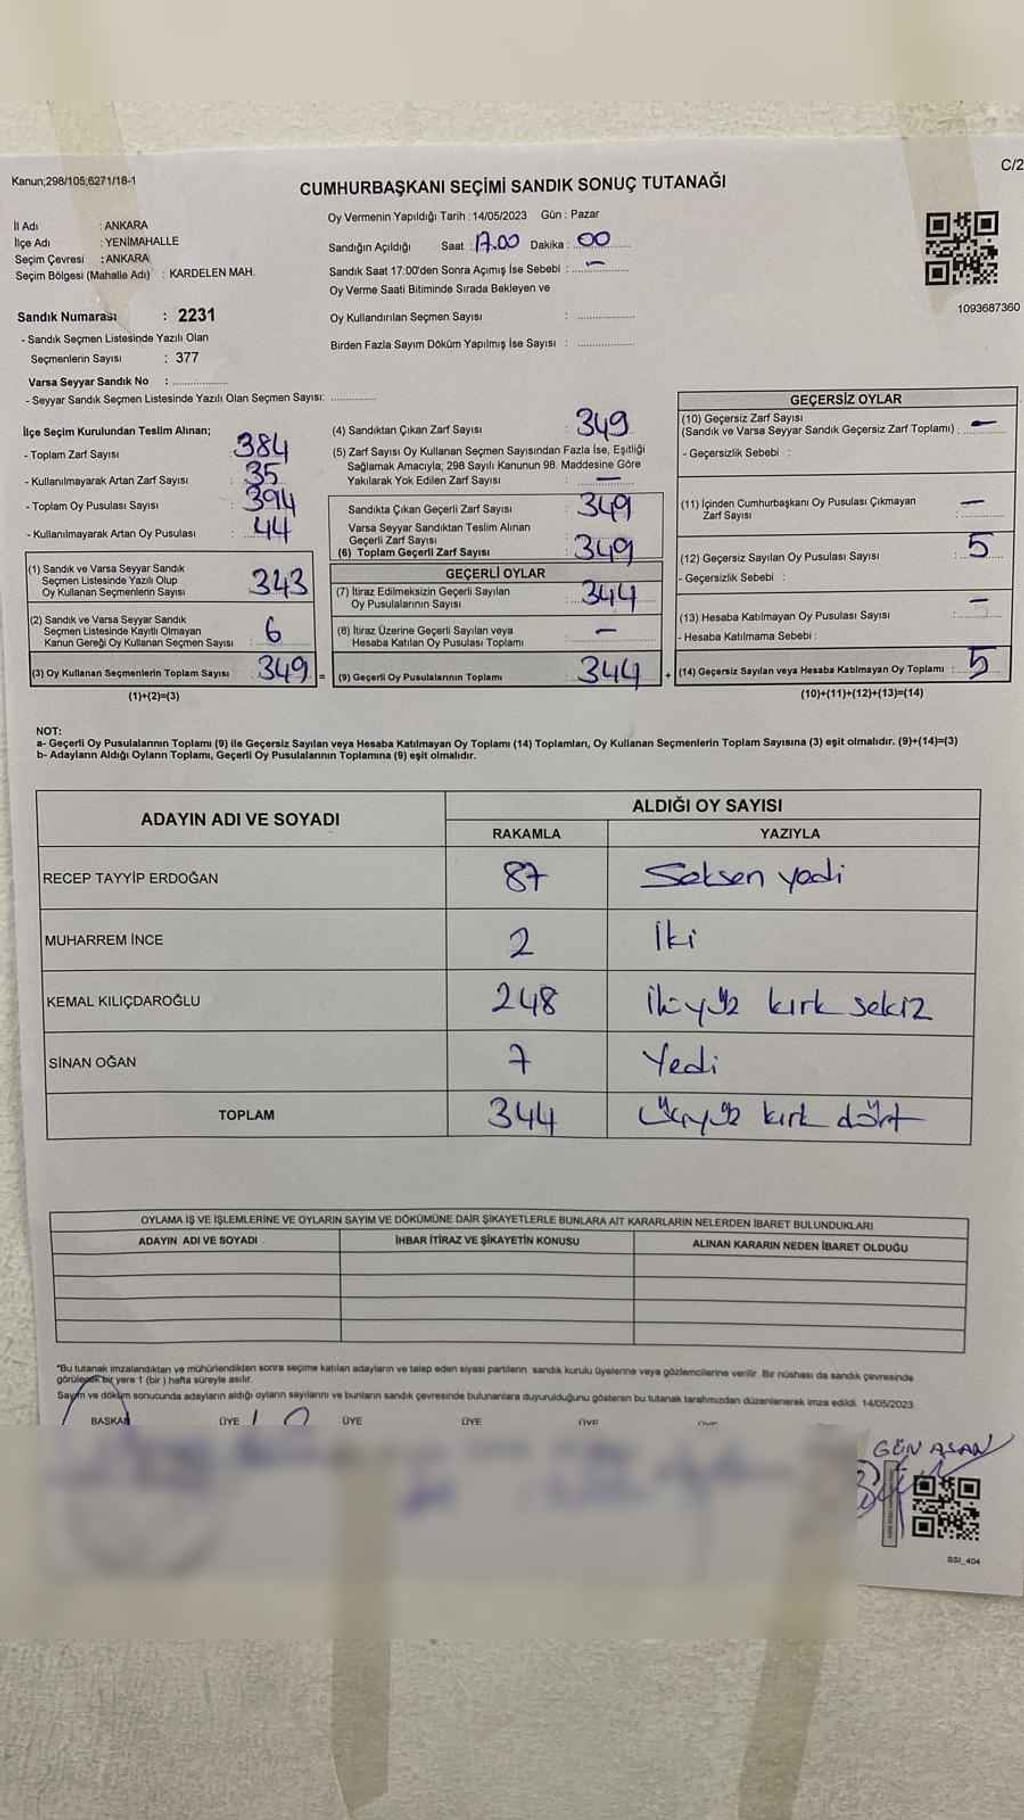 Kanun;298/105;6271/16-1
C/2
CUMHURBAŞKANI SEÇİMİ SANDIK SONUÇ TUTANAĞI
İl Adı : ANKARA
İlçe Adı : YENİMAHALLE
Seçim Çevresi : ANKARA
Seçim Bölgesi (Mahalle Adı) : KARDELEN MAH.
Sandık Numarası : 2231
- Sandık Seçmen Listesinde Yazılı Olan
Seçmenlerin Sayısı : 377
Varsa Seyyar Sandık No : ................
- Seyyar Sandık Seçmen Listesinde Yazılı Olan Seçmen Sayısı: ............
Oy Vermenin Yapıldığı Tarih : 14/05/2023 Gün : Pazar
Sandığın Açıldığı Saat : 17.00 Dakika : 00
Sandık Saat 17:00'den Sonra Açımış İse Sebebi : –
Oy Verme Saati Bitiminde Sırada Bekleyen ve
Oy Kullandırılan Seçmen Sayısı : ................
Birden Fazla Sayım Döküm Yapılmış İse Sayısı : ................
1093687360
İlçe Seçim Kurulundan Teslim Alınan;
- Toplam Zarf Sayısı : 384
- Kullanılmayarak Artan Zarf Sayısı : 35
- Toplam Oy Pusulası Sayısı : 394
- Kullanılmayarak Artan Oy Pusulası : 44
(1) Sandık ve Varsa Seyyar Sandık
Seçmen Listesinde Yazılı Olup
Oy Kullanan Seçmenlerin Sayısı 343
(2) Sandık ve Varsa Seyyar Sandık
Seçmen Listesinde Kayıtlı Olmayan
Kanun Gereği Oy Kullanan Seçmen Sayısı 6
(3) Oy Kullanan Seçmenlerin Toplam Sayısı : 349 =
(1)+(2)=(3)
(4) Sandıktan Çıkan Zarf Sayısı : 349
(5) Zarf Sayısı Oy Kullanan Seçmen Sayısından Fazla İse, Eşitliği
Sağlamak Amacıyla; 298 Sayılı Kanunun 98. Maddesine Göre
Yakılarak Yok Edilen Zarf Sayısı : –
Sandıkta Çıkan Geçerli Zarf Sayısı : 349
Varsa Seyyar Sandıktan Teslim Alınan
Geçerli Zarf Sayısı
(6) Toplam Geçerli Zarf Sayısı : 349
GEÇERLİ OYLAR
(7) İtiraz Edilmeksizin Geçerli Sayılan
Oy Pusulalarının Sayısı : 344
(8) İtiraz Üzerine Geçerli Sayılan veya
Hesaba Katılan Oy Pusulası Toplamı –
(9) Geçerli Oy Pusulalarının Toplamı 344 +
GEÇERSİZ OYLAR
(10) Geçersiz Zarf Sayısı
(Sandık ve Varsa Seyyar Sandık Geçersiz Zarf Toplamı) : –
- Geçersizlik Sebebi :
(11) İçinden Cumhurbaşkanı Oy Pusulası Çıkmayan
Zarf Sayısı : –
(12) Geçersiz Sayılan Oy Pusulası Sayısı : 5
- Geçersizlik Sebebi :
(13) Hesaba Katılmayan Oy Pusulası Sayısı : –
- Hesaba Katılmama Sebebi :
(14) Geçersiz Sayılan veya Hesaba Katılmayan Oy Toplamı : 5
(10)+(11)+(12)+(13)=(14)
NOT:
a- Geçerli Oy Pusulalarının Toplamı (9) ile Geçersiz Sayılan veya Hesaba Katılmayan Oy Toplamı (14) Toplamları, Oy Kullanan Seçmenlerin Toplam Sayısına (3) eşit olmalıdır. (9)+(14)=(3)
b- Adayların Aldığı Oyların Toplamı, Geçerli Oy Pusulalarının Toplamına (9) eşit olmalıdır.
ADAYIN ADI VE SOYADI ALDIĞI OY SAYISI
RAKAMLA YAZIYLA
RECEP TAYYİP ERDOĞAN 87 Seksen yedi
MUHARREM İNCE 2 İki
KEMAL KILIÇDAROĞLU 248 ikiyüz kırk sekiz
SİNAN OĞAN 7 Yedi
TOPLAM 344 üçyüz kırk dört
OYLAMA İŞ VE İŞLEMLERİNE VE OYLARIN SAYIM VE DÖKÜMÜNE DAİR ŞİKAYETLERLE BUNLARA AİT KARARLARIN NELERDEN İBARET BULUNDUKLARI
ADAYIN ADI VE SOYADI İHBAR İTİRAZ VE ŞİKAYETİN KONUSU ALINAN KARARIN NEDEN İBARET OLDUĞU
*Bu tutanak imzalandıktan ve mühürlendikten sonra seçime katılan adayların ve talep eden siyasi partilerin sandık kurulu üyelerine veya gözlemcilerine verilir. Bir nüshası da sandık çevresinde
görülecek bir yere 1 (bir) hafta süreyle asılır.
Sayım ve döküm sonucunda adayların aldığı oyların sayılarını ve bunların sandık çevresinde bulunanlara duyurulduğunu gösteren bu tutanak tarafımızdan düzenlenerek imza edildi. 14/05/2023
BAŞKAN ÜYE ÜYE ÜYE ÜYE ÜYE
GÜN ASAN
SSI_404